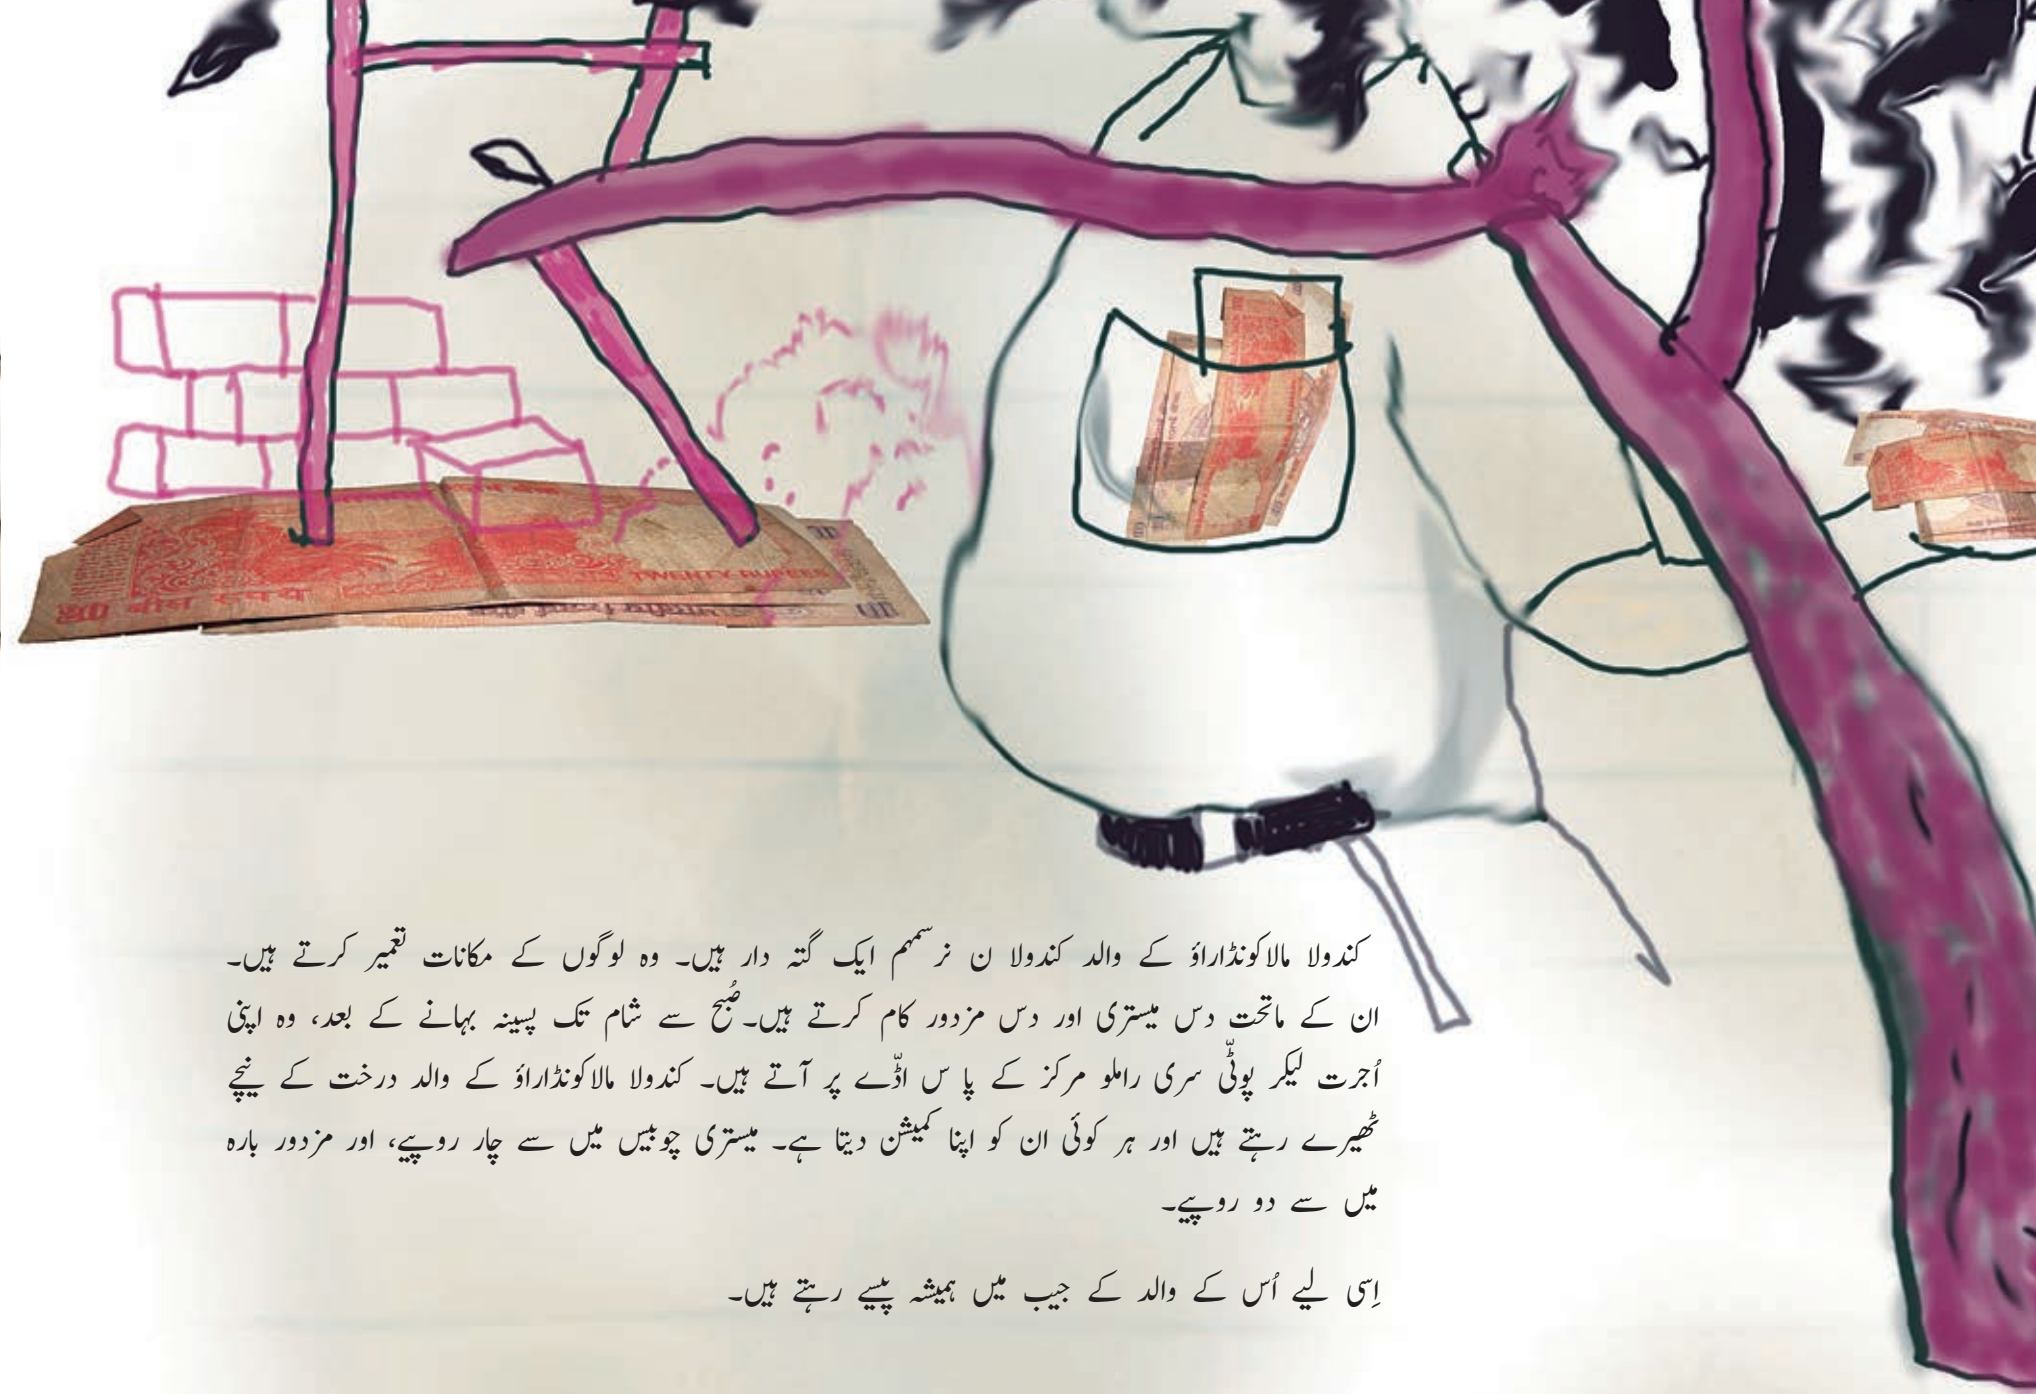 TWENTY RUPEES
20 बीस रुपये
کندولا مالاکونڈاراؤ کے والد کندولا ن نرسمہم ایک گتہ دار ہیں۔ وہ لوگوں کے مکانات تعمیر کرتے ہیں۔
ان کے ماتحت دس میستری اور دس مزدور کام کرتے ہیں۔ صُبح سے شام تک پسینہ بہانے کے بعد، وہ اپنی
اُجرت لیکر پوٹّی سری راملو مرکز کے پا س اڈّے پر آتے ہیں۔ کندولا مالاکونڈاراؤ کے والد درخت کے نیچے
ٹھیرے رہتے ہیں اور ہر کوئی ان کو اپنا کمیشن دیتا ہے۔ میستری چوبیس میں سے چار روپیے، اور مزدور بارہ
میں سے دو روپیے۔
اِسی لیے اُس کے والد کے جیب میں ہمیشہ پیسے رہتے ہیں۔